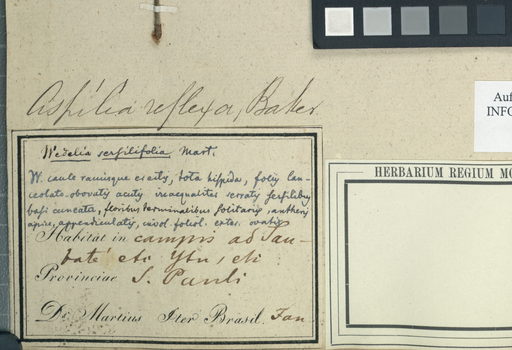 Aspilia reflexa, Baker.
Auf
INFO
Wedelia serfilifolia Mart.
W. caule ramisque erectis, tota hispida, foliis lan-
ceolato-obovatis acutis inaequaliter serratis sessilibus
basi cuneatis, floribus terminalibus solitariis, antheris
apice appendiculatis, invol. foliol. exter. ovatis
Habitat in campis ad Tau-
bate etc Ytu, etc
Provinciae S. Pauli
Dr. Martius Iter Brasil. Jan
HERBARIUM REGIUM MO